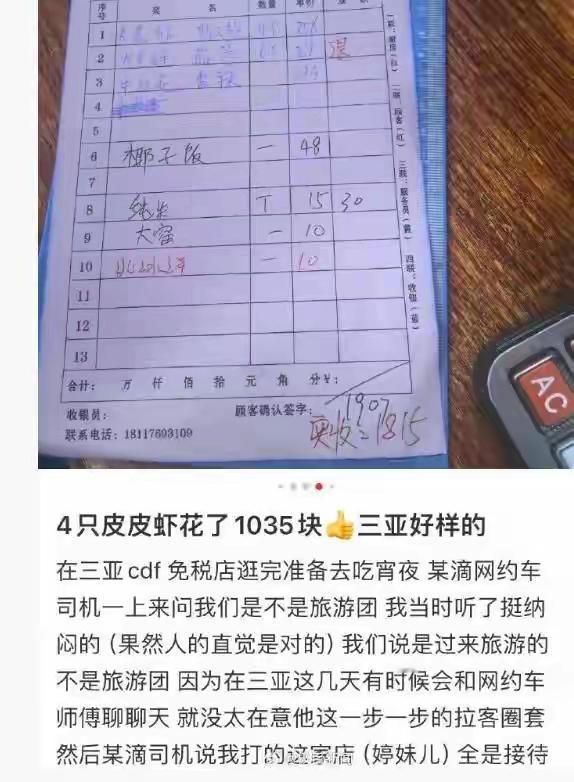 序号 菜 名 数量 单价
1
2 退
3
4
5
6 椰子饭 一 48
7
8 纯生 T 15 30
9 大窑 一 10
10 一 10
11
12
13
合计: 万 仟 佰 拾 元 角 分¥:
收银员: 顾客确认签字:
1907
联系电话:18117603109
实收=1815
一联:厨房(白) 二联:顾客(红) 三联:服务员(黄) 四联:收银(蓝)
AC
4只皮皮虾花了1035块👍三亚好样的
在三亚cdf 免税店逛完准备去吃宵夜 某滴网约车
司机一上来问我们是不是旅游团 我当时听了挺纳
闷的(果然人的直觉是对的)我们说是过来旅游的
不是旅游团 因为在三亚这几天有时候会和网约车
师傅聊聊天 就没太在意他这一步一步的拉客圈套
然后某滴司机说我打的这家店(婷妹儿)全是接待